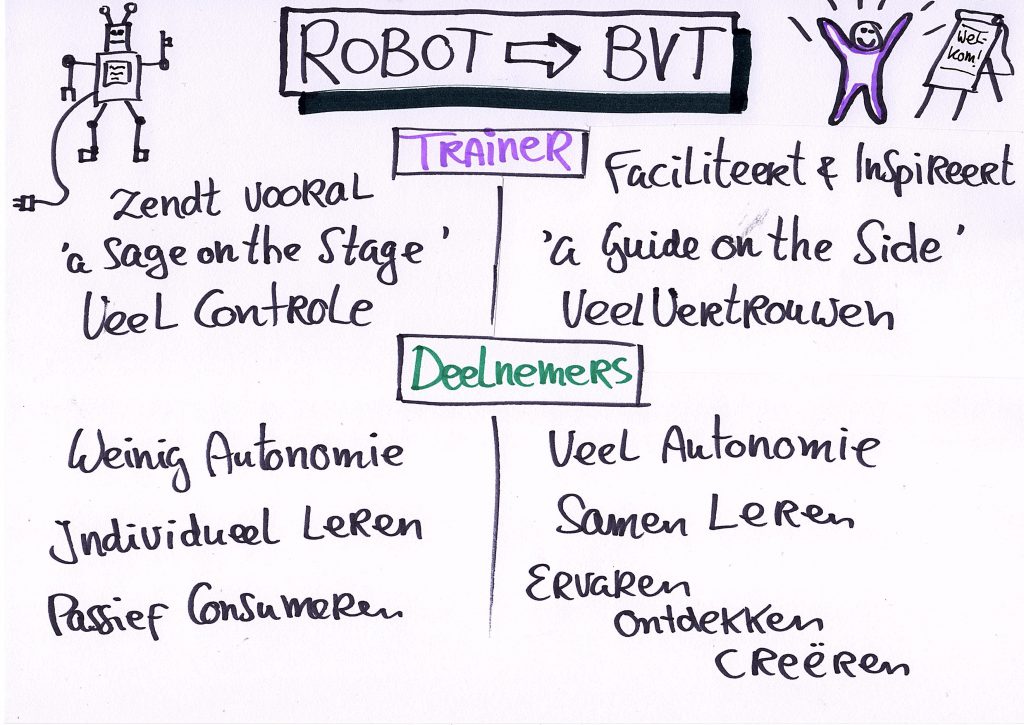 ROBOT ⇨ BVT
Wel-
kom!
TRAINER
Zendt vooral
'a Sage on the Stage'
Veel Controle
Faciliteert & Inspireert
'a Guide on the Side'
Veel Vertrouwen
Deelnemers
Weinig Autonomie
Individueel Leren
Passief Consumeren
Veel Autonomie
Samen Leren
Ervaren
Ontdekken
Creëren